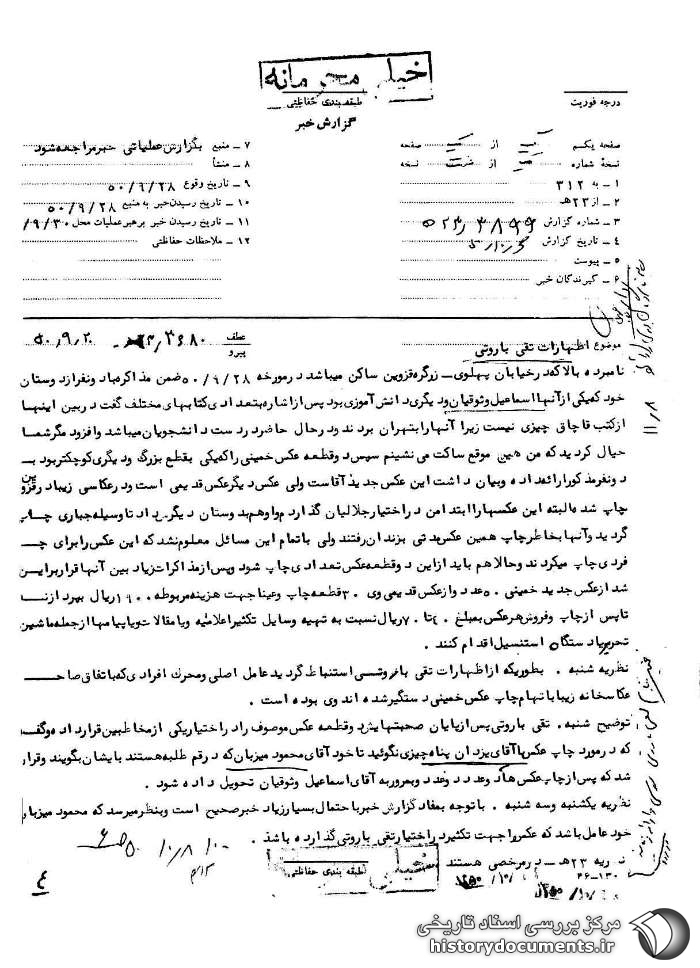 خیلی محرمانه
طبقه بندی حفاظتی
گزارش خبر
درجه فوریت
صفحه یکم از صفحه
نسخه شماره از نسخه
۱ ـ به ۳۱۲
۲ ـ از ۲۳هـ
۳ ـ شماره گزارش
۴ ـ تاریخ گزارش
۵ ـ پیوست
۶ ـ گیرندگان خبر
۷ ـ منبع بگزارش عملیاتی خبر مراجعه شود
۸ ـ منشأ
۹ ـ تاریخ وقوع ۵۰/۹/۲۸
۱۰ ـ تاریخ رسیدن خبر به منبع ۵۰/۹/۲۸
۱۱ ـ تاریخ رسیدن خبر برهبر عملیات محل ۹/۳۰/
۱۲ ـ ملاحظات حفاظتی
موضوع اظهارات تقی باروتی
عطف
پیرو
نامبرده بالا که در خیابان پهلوی ـ زرگره قزوین ساکن میباشد در مورخه ۵۰/۹/۲۸ ضمن مذاکره با دو نفر از دوستان
خود که یکی از آنها اسماعیل وثوقیان و دیگری دانش آموزی بود پس از اشاره بتعدادی کتابهای مختلف گفت در بین اینها
از کتب قاچاق چیزی نیست زیرا آنها را بتهران بردند و در حال حاضر در دست دانشجویان میباشد و افزود مگر شما
خیال کردید که من همین موقع ساکت می نشینم سپس دو قطعه عکس خمینی را که یکی بقطع بزرگ و دیگری کوچکتر بود به
دو نفر مذکور ارائه داده و بیان داشت این عکس جدید آقاست ولی عکس دیگر عکس قدیمی است و در عکاسی زیبا در قزوین
چاپ شده البته این عکسها را ابتدا من در اختیار جلالیان گذاردم و او هم به دوستان دیگر داد تا وسیله جباری چاپ
گردید و آنها بخاطر چاپ همین عکس مدتی بزندان رفتند ولی با تمام این مسائل معلوم نشد که این عکس را برای چه
فردی چاپ میکردند و حالا هم باید از این دو قطعه عکس تعدادی چاپ شود و پس از مذاکرات زیاد بین آنها قرار براین
شد از عکس جدید خمینی ۵۰ عدد و از عکس قدیمی وی ۳۰ قطعه چاپ و عینا جهت هزینه مربوطه ۱۹۰۰ ریال بپردازند
تا پس از چاپ و فروش هر عکس بمبلغ ۴۰ تا ۷۰ ریال نسبت به تهیه وسایل تکثیر اعلامیه و یا مقالات و یا پیامها از جمله ماشین
تحریر یا دستگاه استنسیل اقدام کنند .
نظریه شنبه . بطوریکه از اظهارات تقی باروتی استنباط گردید عامل اصلی و محرک افرادی که باتفاق صاحب
عکاسخانه زیبا با تهام چاپ عکس خمینی دستگیر شده اند وی بوده است .
توضیح شنبه . تقی باروتی پس از پایان صحبتهایش دو قطعه عکس موصوف را در اختیار یکی از مخاطبین قرار داد و گفت
که در مورد چاپ عکس با آقای یزدان پناه چیزی نگوئید تا خود آقای محمود میزبان که در قم طلبه هستند بایشان بگویند و قرار
شد که پس از چاپ عکس ها دو عدد دو عدد و بمرور به آقای اسماعیل وثوقیان تحویل داده شود .
نظریه یکشنبه و سه شنبه . با توجه بمفاد گزارش خبر با احتمال بسیار زیاد خبر صحیح است و بنظر میرسد که محمود میزبان
خود عامل باشد که عکس را جهت تکثیر در اختیار تقی باروتی گذارده باشد .
نظریه ۲۳هـ ـ در مرخصی هستند
خیلی
طبقه بندی حفاظتی
۴
مرکز بررسی اسناد تاریخی
historydocuments.ir